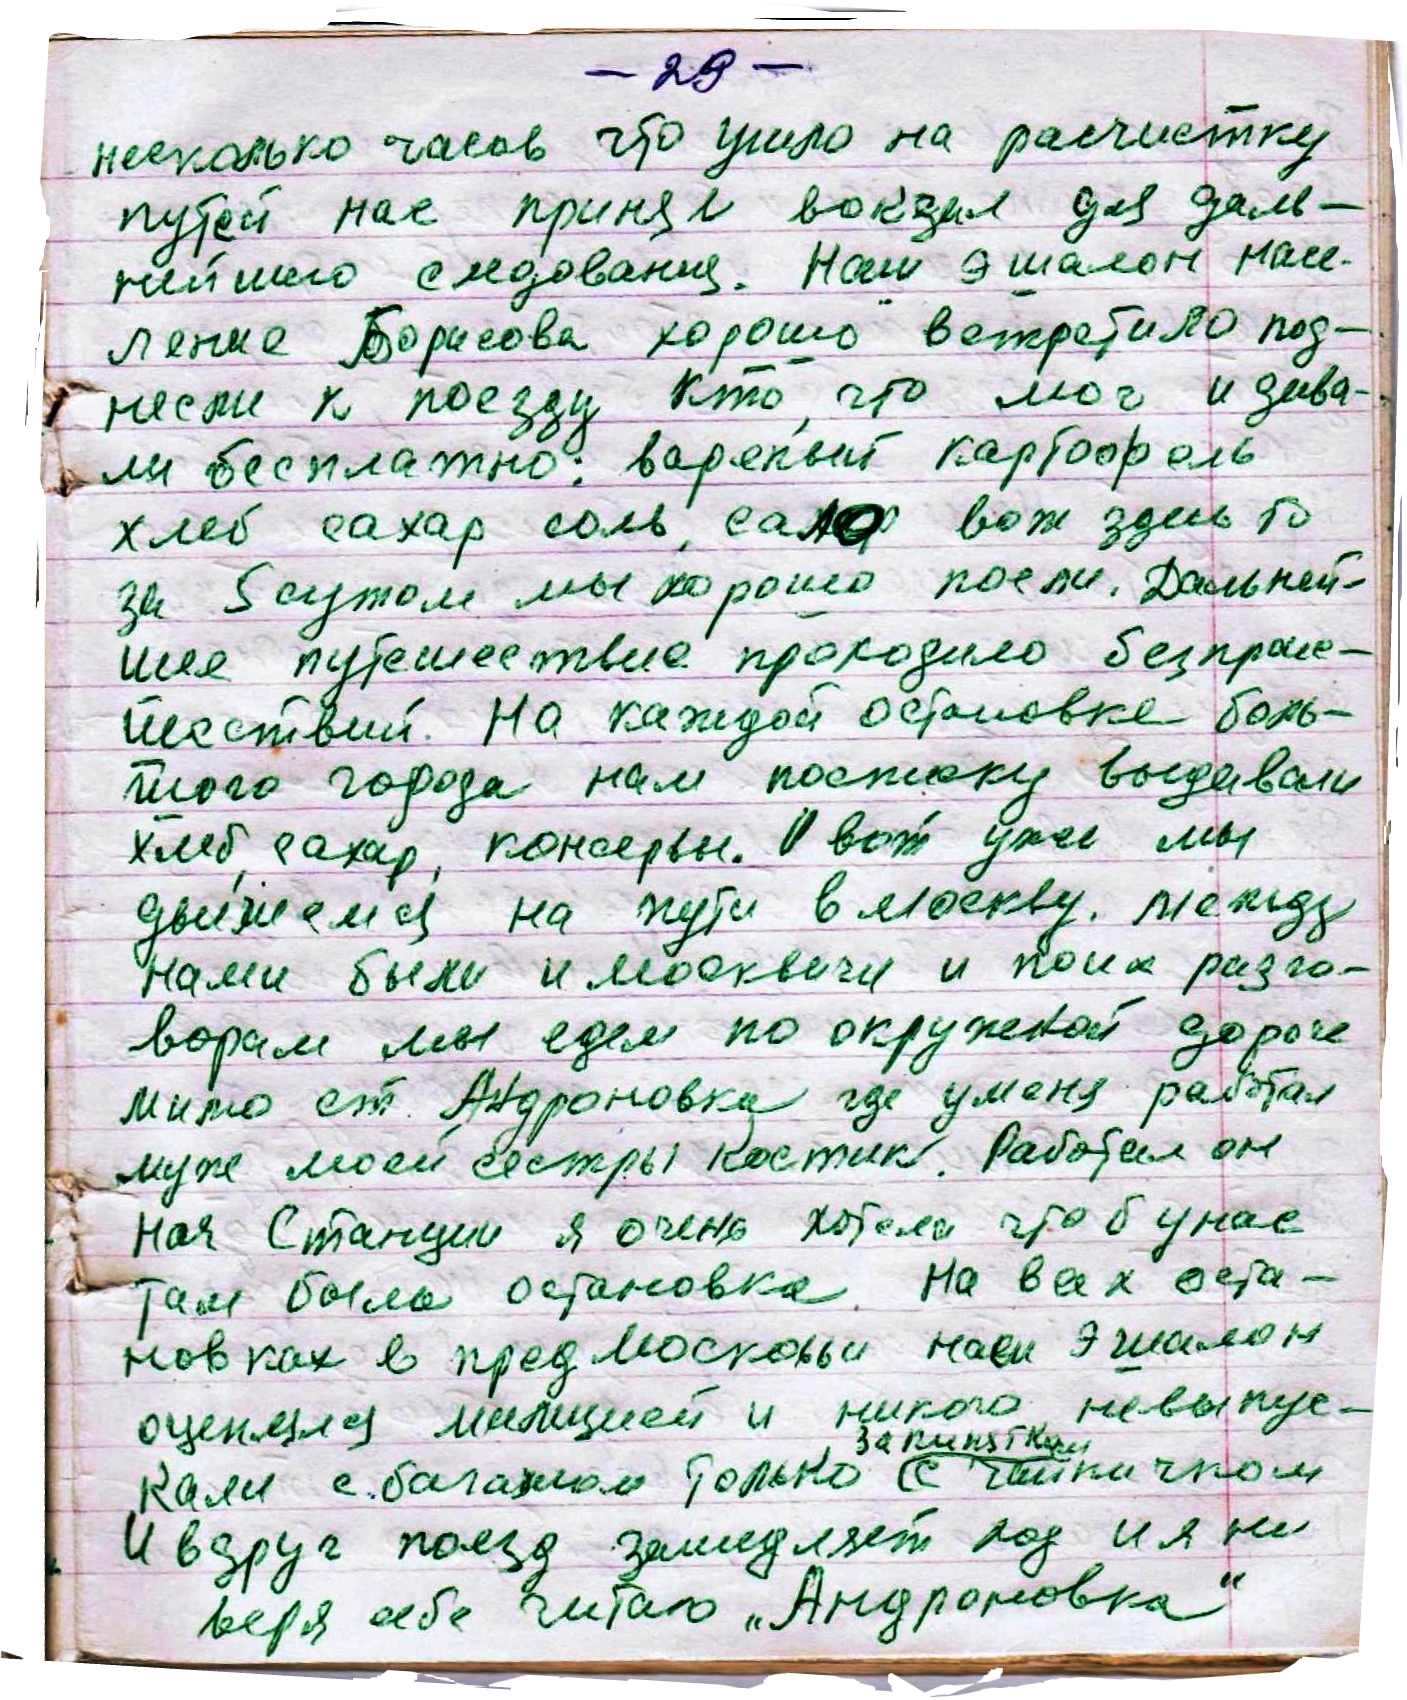 — 29 —
несколько часов что ушло на расчистку
путей нас принял вокзал для даль—
нейшего следования. Наш эшалон насе-
ление Борисова хорошо встретило под—
несли к поезду кто, что мог и дава-
ли бесплатно: вареный картофель
хлеб сахар соль, сало вот здесь то
за 5 суток мы хорошо поели. Дальней-
шее путешествие проходило безпрои—
шествий. На каждой остановке боль—
шого города нам по списку выдавали
хлеб, сахар, консервы. И вот уже мы
движемся на пути в Москву. Между
нами были и москвичи и по их разго—
ворам мы едем по окружной дороге
мимо ст. Андроновка где уменя работал
муж моей сестры Костик. Работал он
Нач Станции я очень хотела чтоб унас
там была остановка. На всех оста—
новках в предМосковьи наш эшалон
оценялся милицией и никого невыпус—
за кипятком
кали с багажом только с чайничком
И вдруг поезд замедляет ход и я не
веря себе читаю „Андроновка“